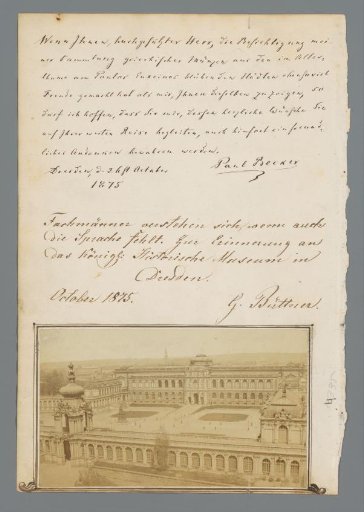 Wenn Ihnen, hochgeschätzter Herr, die Besichtigung mei-
ner Sammlung griechischer Münzen aus den im Alter-
thume am Pontus Euxinus blühenden Städten ebensoviel
Freude gemacht hat als mir, Ihnen dieselben zu zeigen, so
darf ich hoffen, dass Sie mir, dessen herzliche Wünsche Sie
auf Ihrer weiten Reise begleiten, auch hinfort ein freund-
liches Andenken bewahren werden.
Dresden, d. October
Paul Becker
1875
Fachmänner verstehen sich, wenn auch
die Sprache fehlt. Zur Erinnerung an
das Königl. Historische Museum in
Dresden.
October 1875.
G. Büttner.